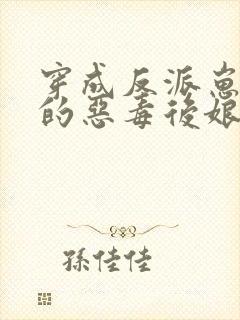 穿成反派崽
的惡毒後娘
孫佳佳